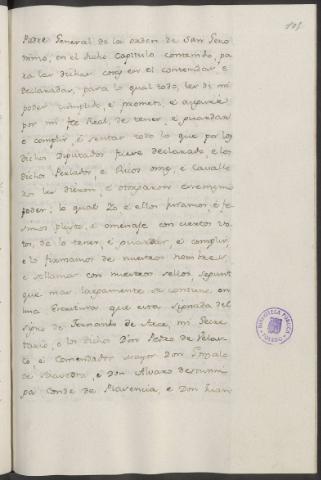 101
Padre General de la orden de San Gero
nimo, en el dicho Capitulo contenido, pa
ra las dichas cosas en el contenidas, e
declaradas, para lo qual todo, les di mi
poder cumplido, e prometi, e asseguré
por mi fe Real, de tener, e guardar
e complir, e sentar todo lo que por los
dichos Diputados fuere declarado, e los
dichos Perlados, e Ricos omes, e Cavalle
ros les dieron, e otorgaron ese mismo
poder, lo qual Yo e ellos juramos, e fe
simos pleyto, e omenaje con ciertos vo
tos, de lo tener, e guardar, e complir,
e lo firmamos de nuestros nombres,
e sellamos con nuestros sellos, segunt
que mas largamente se contiene en
una Escritura que esta signada del
signo de Fernando de Arce, mi Secre
tario, e los dichos Don Pedro de Velas
co, e el Comendador mayor Don Gonzalo
de Saavedra, e Don Alvaro Destuñi
ga Conde de Plasencia, e Don Juan
BIBLIOTECA PUBLICA
TOLEDO